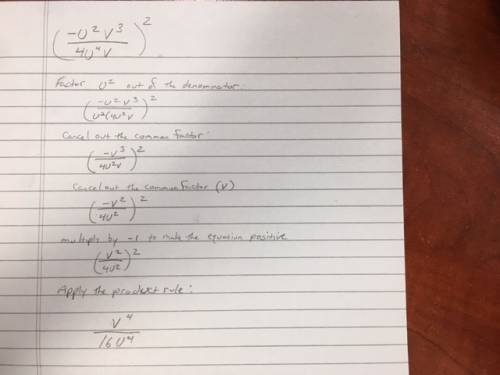 (-U²V³ / 4U⁴V)²
Factor U² out of the denominator
(-U²V³ / U²(4U²V)²
Cancel out the common factor:
(-V³ / 4U²V)²
Cancel out the common factor (V)
(-V² / 4U²)²
multiply by -1 to make the equation positive
(V² / 4U²)²
Apply the product rule:
V⁴ / 16U⁴